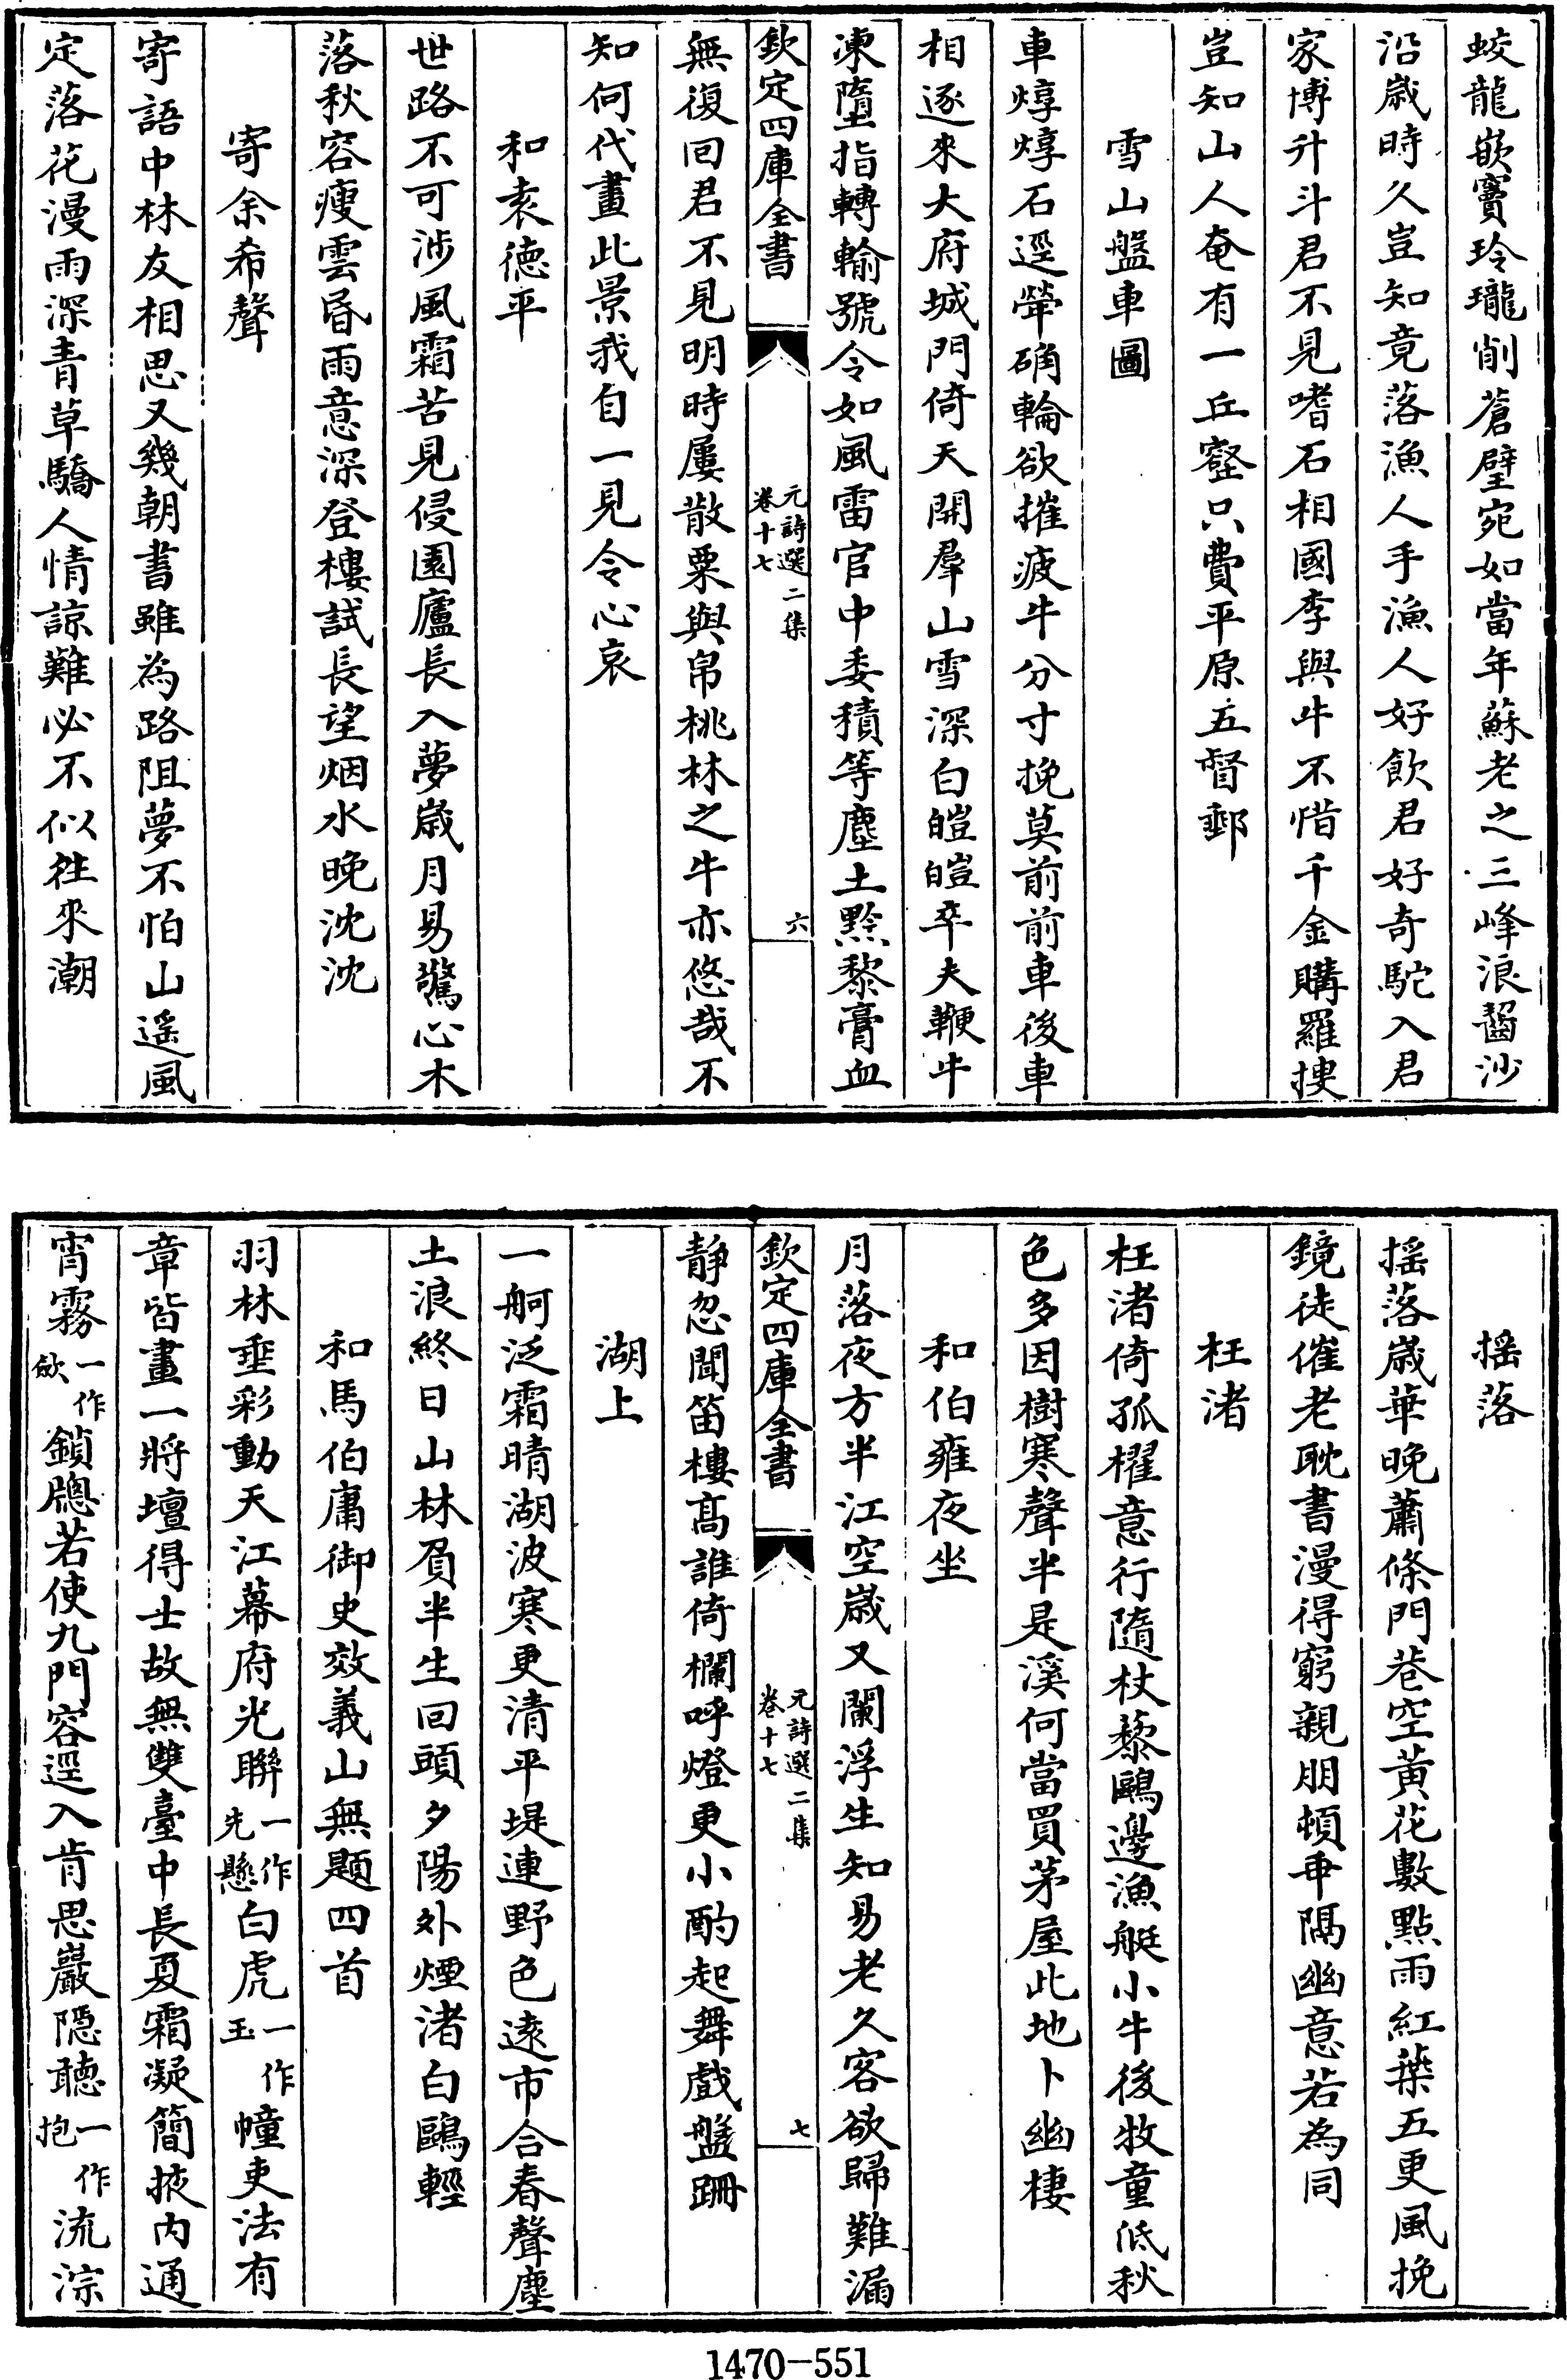 蛟龍嵌竇玲瓏削蒼壁宛如當年蘇老之三峰浪齧沙
沿歲時久豈知竟落漁人手漁人好飲君好奇駝入君
家博升斗君不見嗜石相國李與牛不惜千金購羅搜
豈知山人奄有一丘壑只費平原五督郵
雪山盤車圖
車焞焞石逕犖确輪欲摧疲牛分寸挽莫前前車後車
相逐來大府城門倚天開羣山雪深白皚皚卒夫鞭牛
凍墮指轉輸號令如風雷官中委積等塵土黔黎膏血
欽定四庫全書
元詩選二集
卷十七
六
無復回君不見明時屢散粟與帛桃林之牛亦悠哉不
知何代畫此景我自一見令心哀
和袁德平
世路不可涉風霜苦見侵園廬長入夢歲月易驚心木
落秋容瘦雲昏雨意深登樓試長望烟水晚沈沈
寄余希聲
寄語中林友相思又幾朝書雖為路阻夢不怕山遥風
定落花漫雨深青草驕人情諒難必不似往來潮
揺落
揺落歲華晚蕭條門巷空黃花數點雨紅葉五更風挽
鏡徒催老耽書漫得窮親朋頓乖隔幽意若為同
枉渚
枉渚倚孤櫂意行隨杖藜鷗邊漁艇小牛後牧童低秋
色多因樹寒聲半是溪何當買茅屋此地卜幽棲
和伯雍夜坐
月落夜方半江空歲又闌浮生知易老久客欲歸難漏
欽定四庫全書
元詩選二集
卷十七
七
靜忽聞笛樓高誰倚欄呼燈更小酌起舞戲盤跚
湖上
一舸泛霜晴湖波寒更清平堤連野色遠市合春聲塵
土浪終日山林負半生回頭夕陽外煙渚白鷗輕
和馬伯庸御史效義山無題四首
羽林垂彩動天江幕府光聯一作先懸白虎一作玉幢吏法有
章皆畫一將壇得士故無雙臺中長夏霜凝簡掖内通
宵霧一作歛鎖牕若使九門容逕入肯思巖隱聴一作抱流淙
1470-551